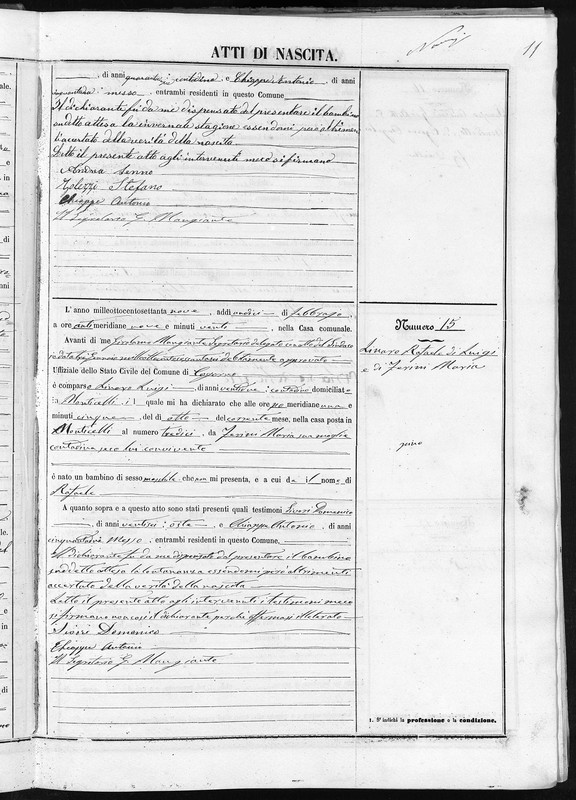 Novi
11
ATTI DI NASCITA.
, di anni quaranta; contadino e Chiappe Antonio, di anni
cinquantadue; messo, entrambi residenti in questo Comune
Il dichiarante fu da me dispensato dal presentare il bambino
suddetto attesa la invernale stagione essendomi però altrimenti
accertato della verità della nascita
Letto il presente atto agli intervenuti meco si firmano
Andrea
Stefano
Chiappe Antonio
Il Segretario G. Mangiante
L'anno milleottocentosettanta nove, addì undici di febbraio,
a ore antimeridiane nove e minuti venti, nella Casa comunale.
Avanti di me Girolamo Mangiante Segretario delegato con atto del Sindaco
debitamente approvato
Uffiziale dello Stato Civile del Comune di
è comparso Livoro Luigi, di anni ventinove; contadino domiciliato
in Monticelli il quale mi ha dichiarato che alle ore pomeridiane una e
minuti cinque, del dì otto del corrente mese, nella casa posta in
Monticelli al numero tredici, da Ferini Maria sua moglie
contadina seco lui convivente
è nato un bambino di sesso maschile che non mi presenta, e a cui dà il nome di
Rafaele
A quanto sopra e a questo atto sono stati presenti quali testimoni Domenico
, di anni ventisei; oste e Chiappe Antonio, di anni
cinquantadue Messo, entrambi residenti in questo Comune
Il dichiarante fu da me dispensato dal presentare il bambino
suddetto attesa la lontananza essendomi però altrimenti
accertato della verità della nascita
Letto il presente atto agli intervenuti i testimoni meco
si firmano non così il dichiarante perché affermasi illetterato
Domenico
Chiappe Antonio
Il Segretario G. Mangiante
Numero 15
Livoro Rafaele di Luigi
e di Ferini Maria
1. Si indichi la professione o la condizione.